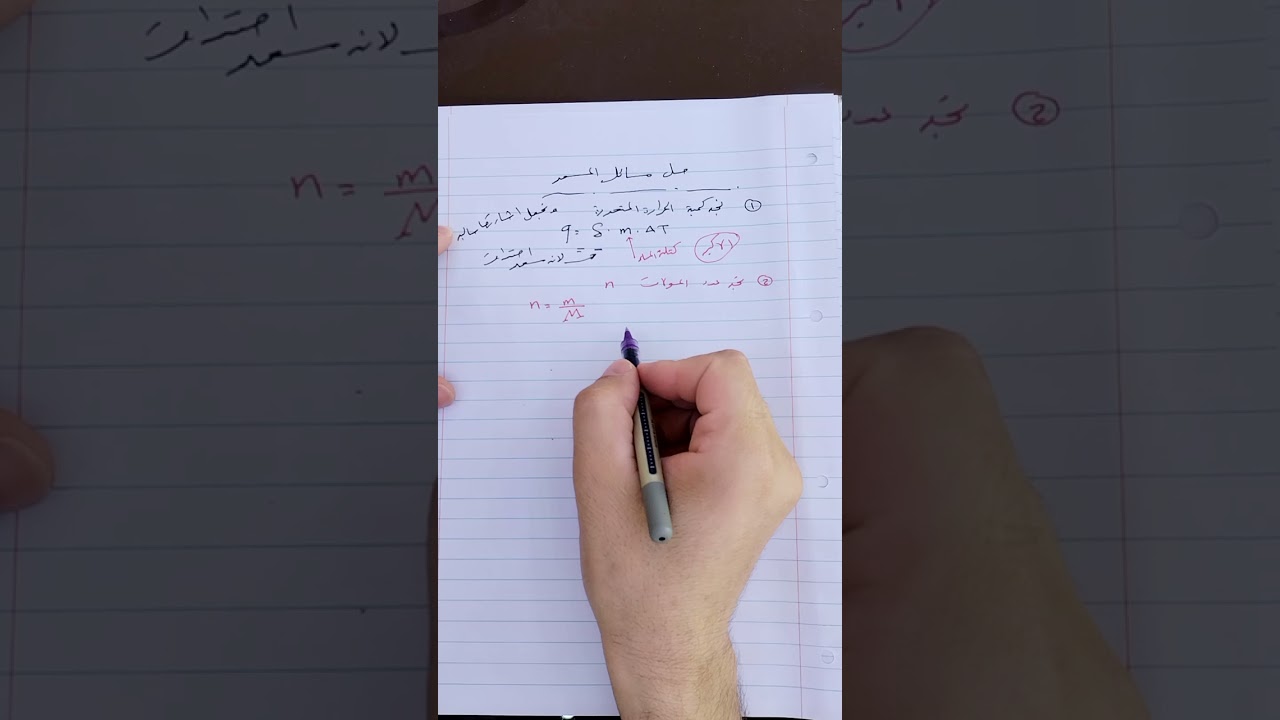 حل مسائل المسعر
① نجد كمية الحرارة المتحررة ونجعل اشارتها سالبة
q = S . m . ΔT
الاكبر كتلة الماء لانه مسعر احتراق
② نجد عدد المولات n
n = m/M